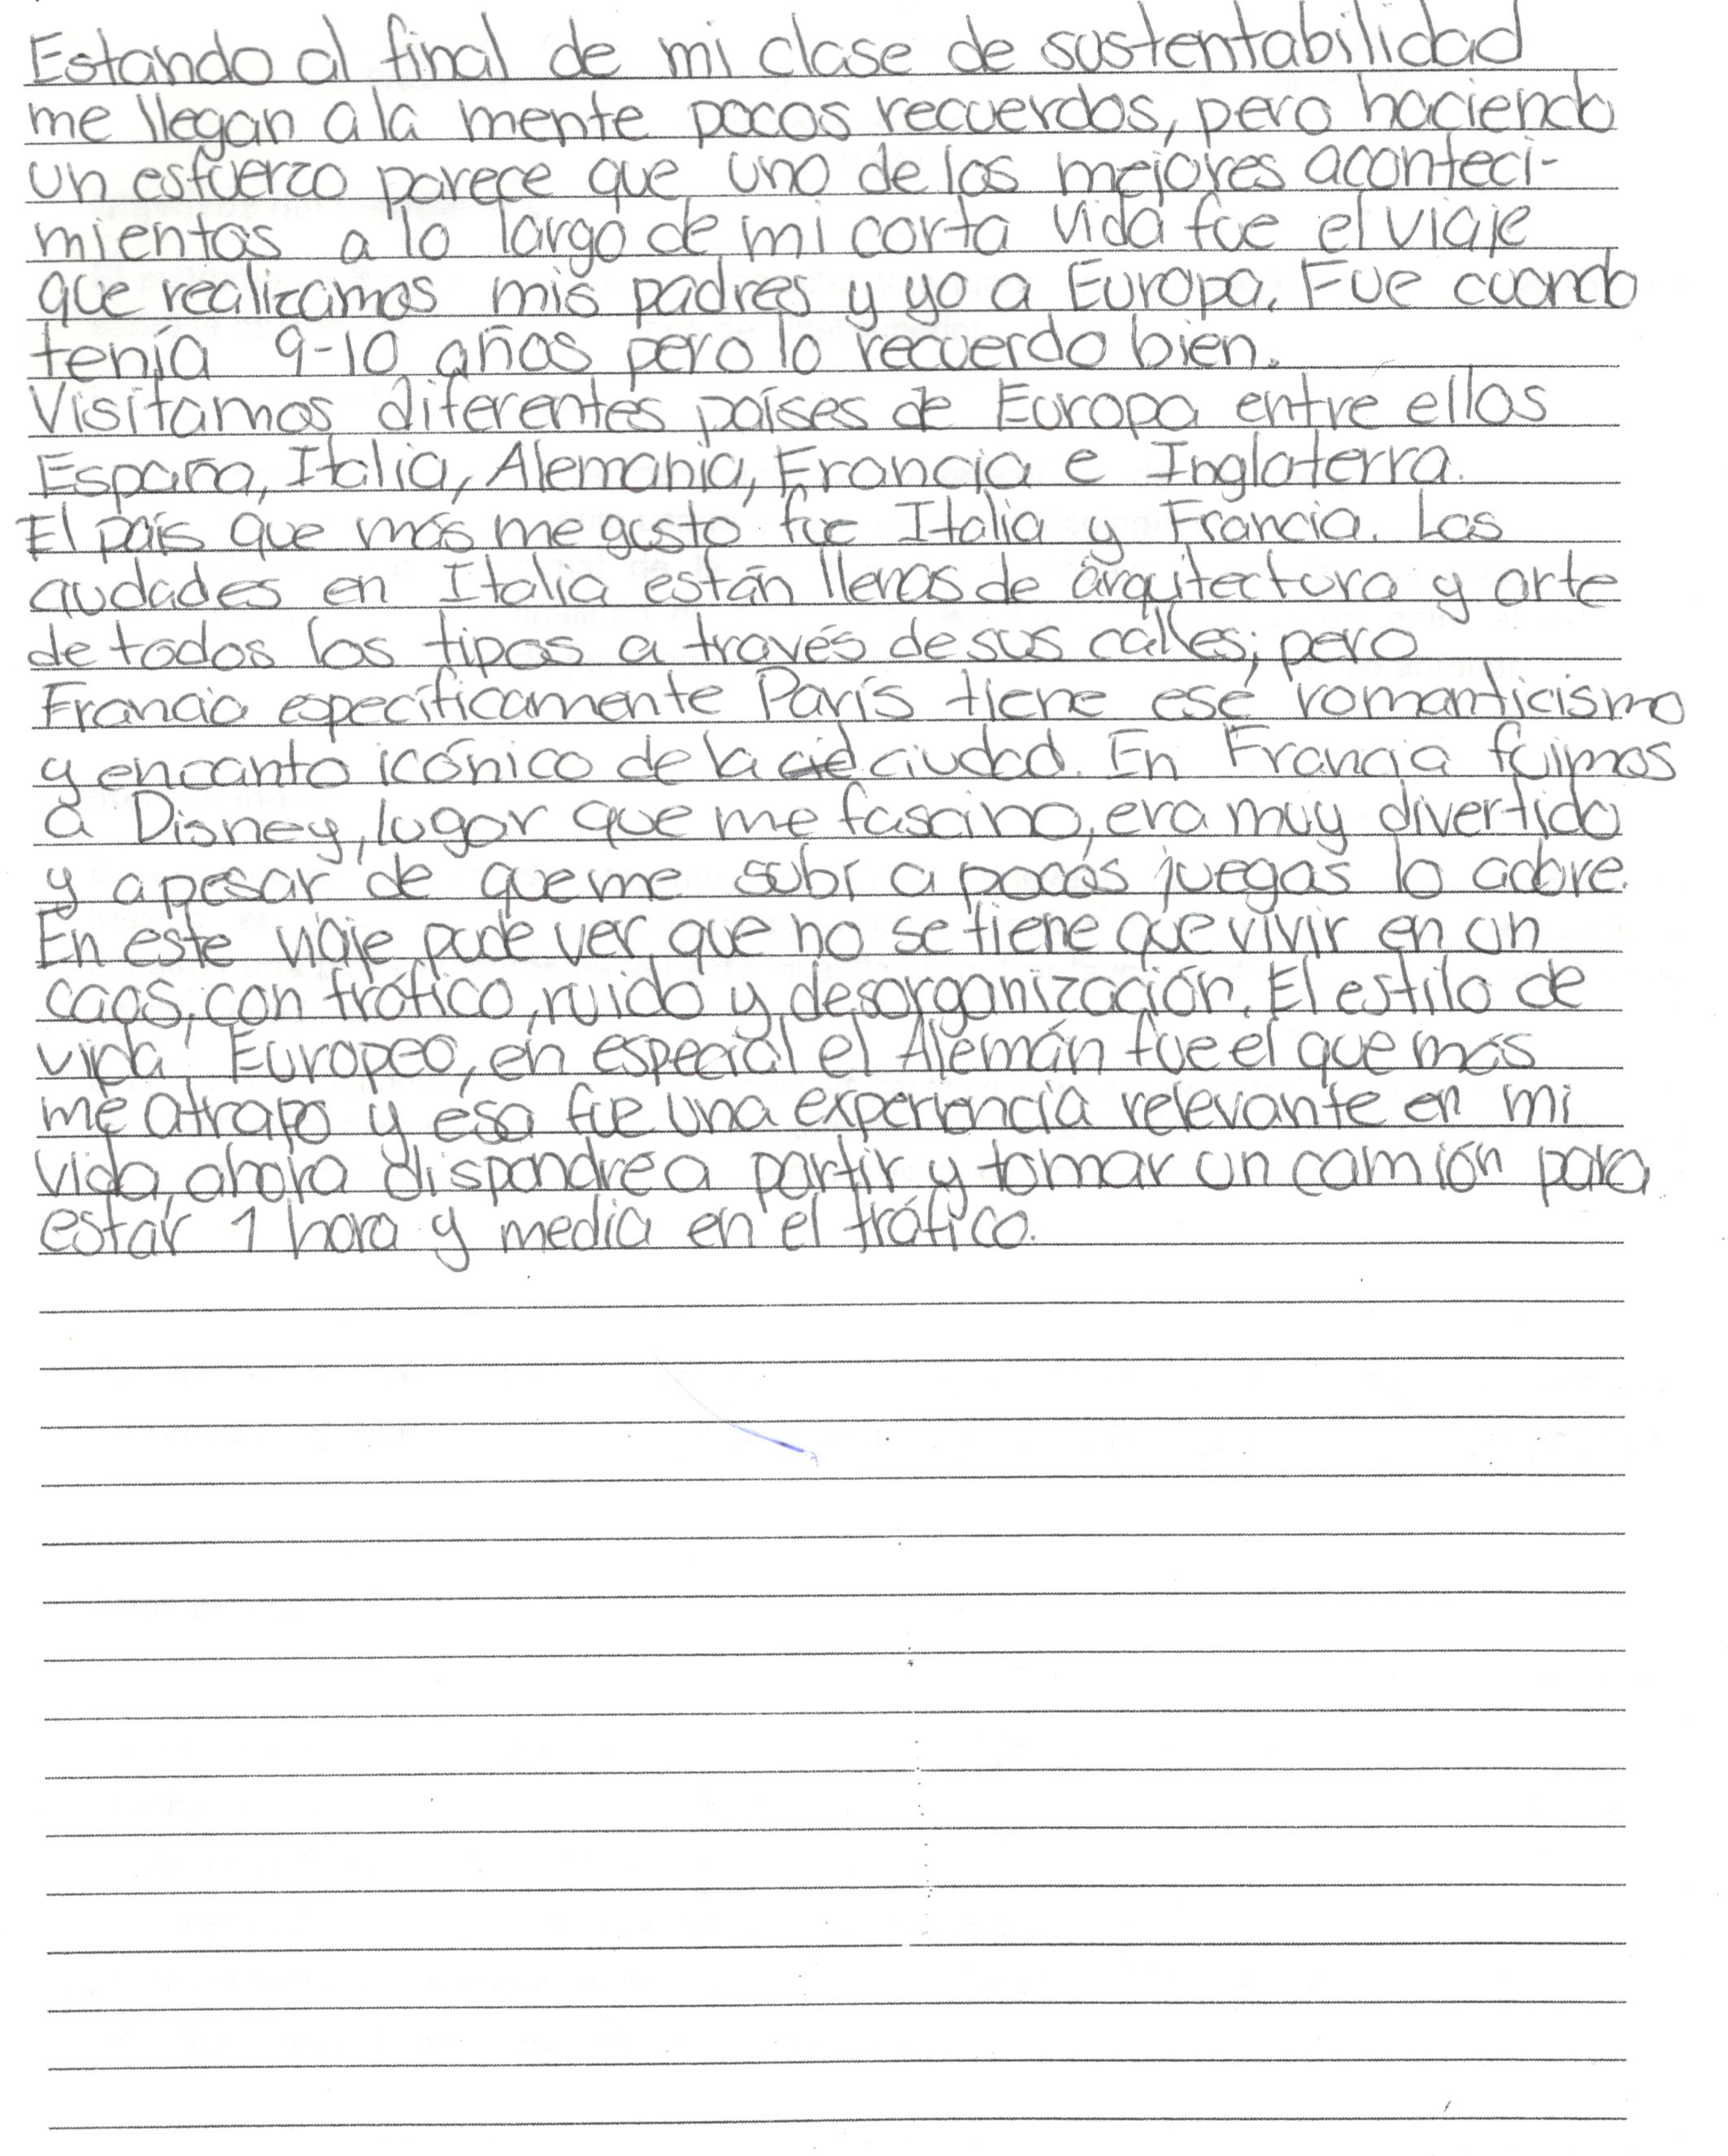 Estando al final de mi clase de sustentabilidad
me llegan a la mente pocos recuerdos, pero haciendo
un esfuerzo parece que uno de los mejores aconteci-
mientos a lo largo de mi corta vida fue el viaje
que realizamos mis padres y yo a Europa. Fue cuando
tenía 9-10 años pero lo recuerdo bien.
Visitamos diferentes países de Europa entre ellos
España, Italia, Alemania, Francia e Inglaterra.
El país que más me gustó fue Italia y Francia. Las
ciudades en Italia están llenas de arquitectura y arte
de todos los tipos a través de sus calles; pero
Francia específicamente París tiene ese romanticismo
y encanto icónico de la cid ciudad. En Francia fuimos
a Disney, lugar que me fascino, era muy divertido
y apesar de que me subí a pocos juegos lo adore.
En este viaje pude ver que no se tiene que vivir en un
caos, con tráfico, ruido y desorganización. El estilo de
vida Europeo, en especial el Alemán fue el que más
me atrapo y ésa fue una experiencia relevante en mi
vida, ahora dispondré a partir y tomar un camión para
estar 1 hora y media en el tráfico.